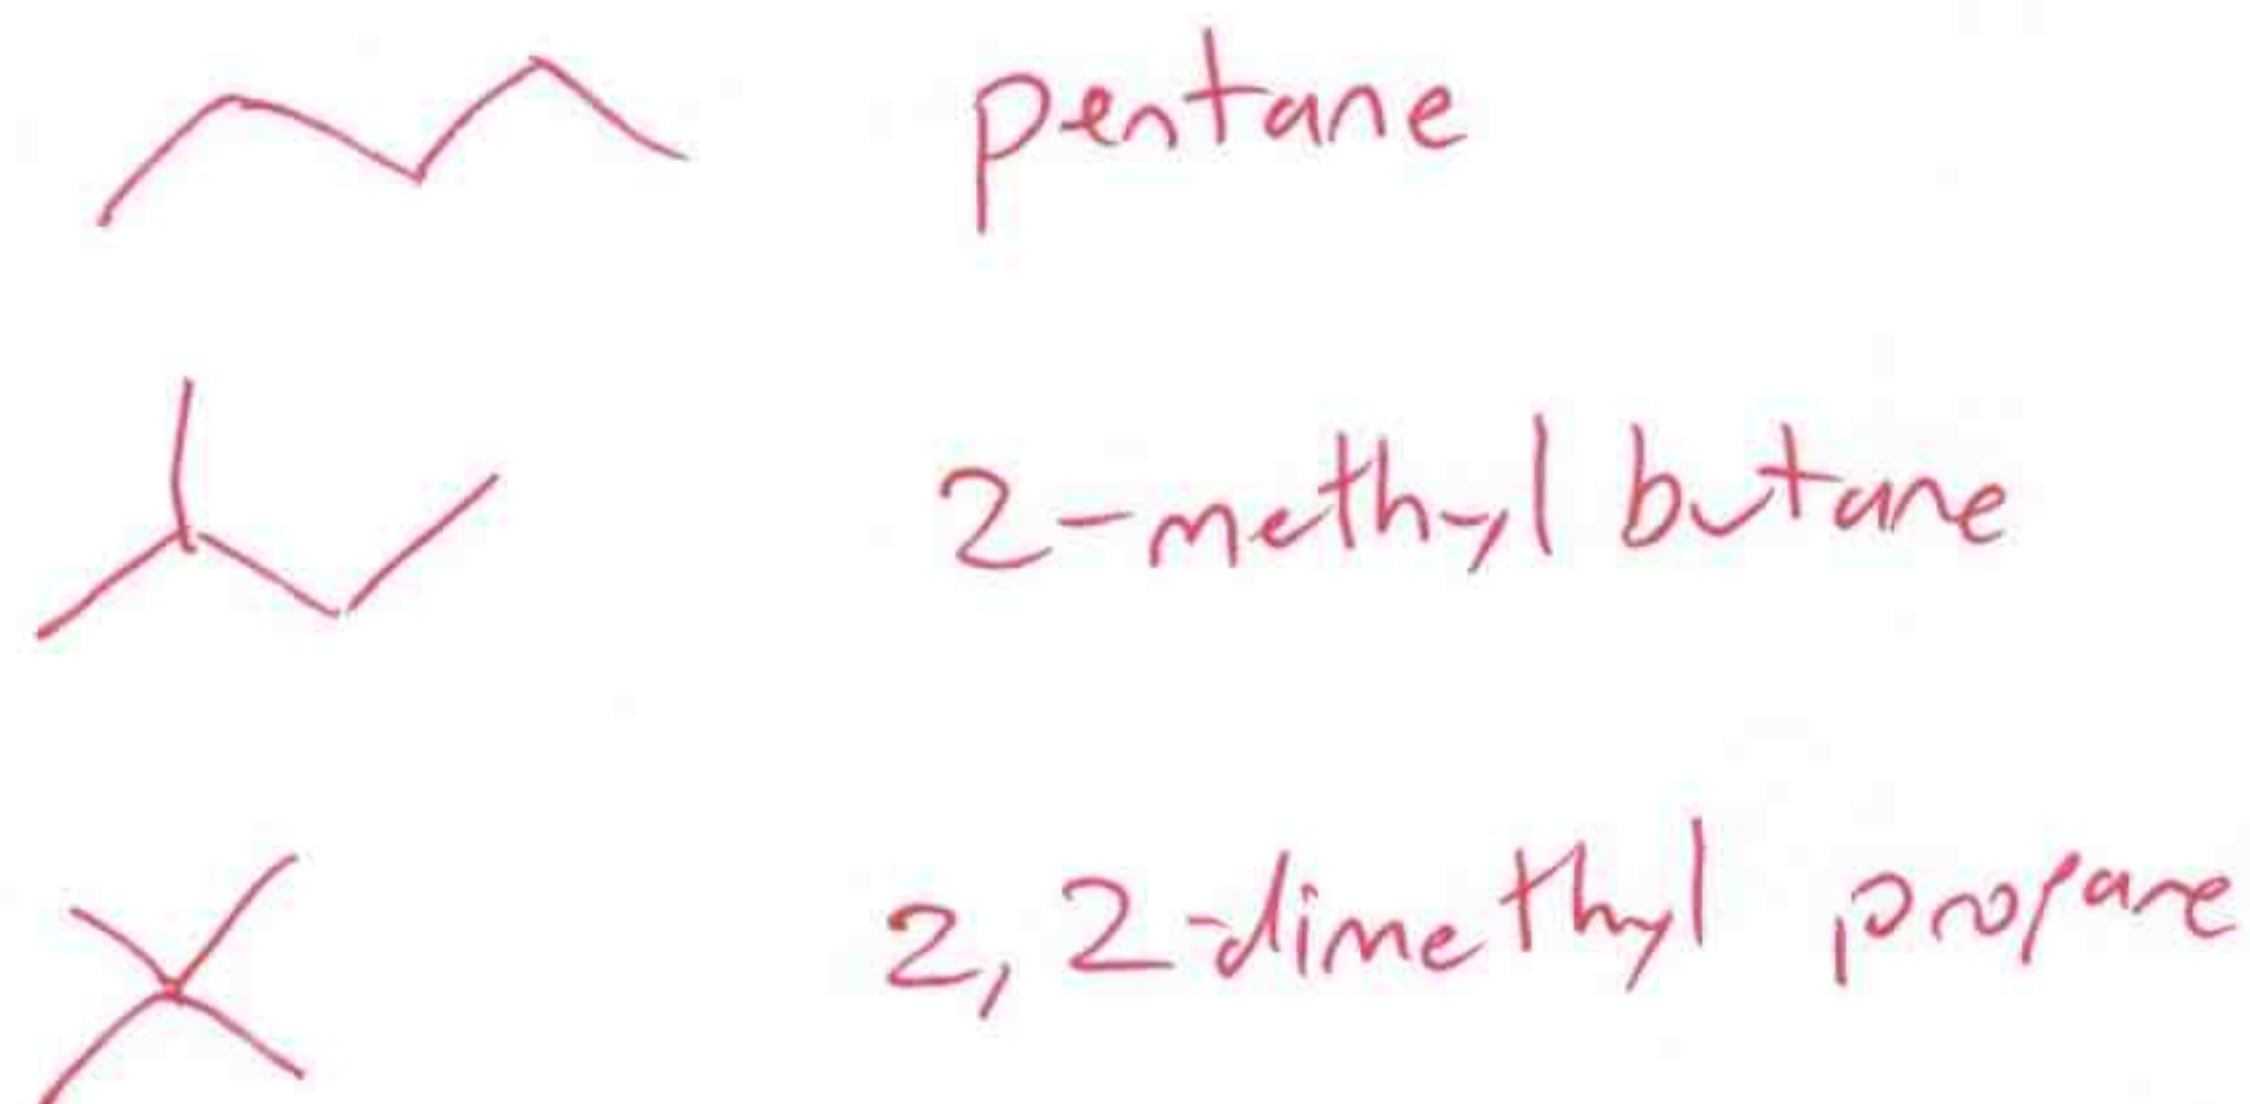 pentane
2-methyl butane
2,2-dimethyl propane